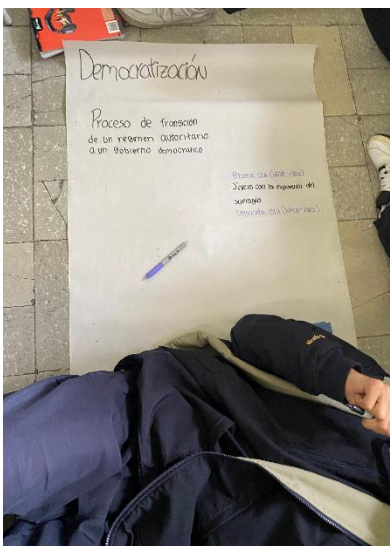 Democratización
Proceso de Transicion
de un regimen autoritario
a un gobierno democratico
Primera ola (1828-1926)
Inicio con la expansión del
sufragio
Segunda ola (1943-1962)